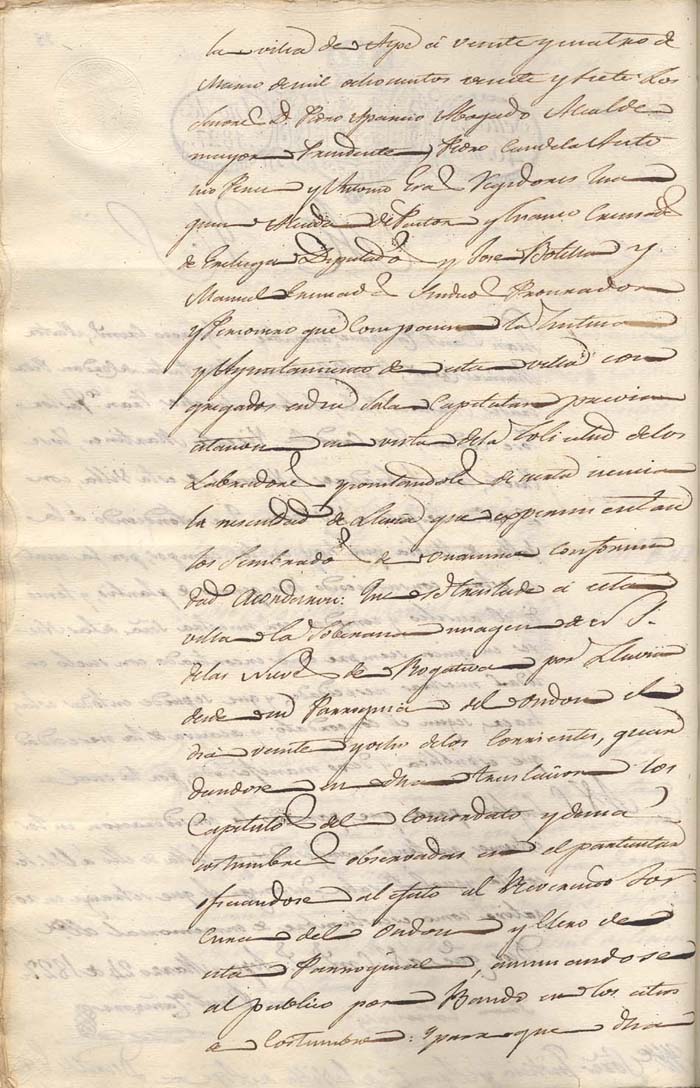 la villa de Aspe á veinte y cuatro de
Marzo de mil ochocientos veinte y siete: Los
Señores D. Pedro Aparicio Abogado Alcalde
mayor Presidente, Pedro Candela Anto
nio Perez y Antonio Erades Regidores Joa
quin Alcaraz Pastor y Franco Cremades
de Diputados y Jose Botella y
Manuel Sindico Procurador
y Personero que componen la Justicia
y Ayuntamiento de esta villa con
gregados en su Sala Capitular previa
citacion en vista de la solicitud de los
Labradores y constandoles de cierta ciencia
la necesidad de Lluvia que experimentan
los Sembrados de unanime conformi
dad Acordaron: Que se traslade á esta
villa la Soberana imagen de N. S.
de las Nieves de Rogativa por Lluvia
desde su Parroquia del Ondon el
dia veinte y ocho de los Corrientes, guar
dandose en dha traslacion los
Capitulos del Concordato y demas
costumbres observadas en el particular
oficiandose al efecto al Reverendo Sor
Cura del Ondon y Clero de
esta Parroquial, anunciandose
al publico por Bando en los sitios
de costumbre: y para que dha